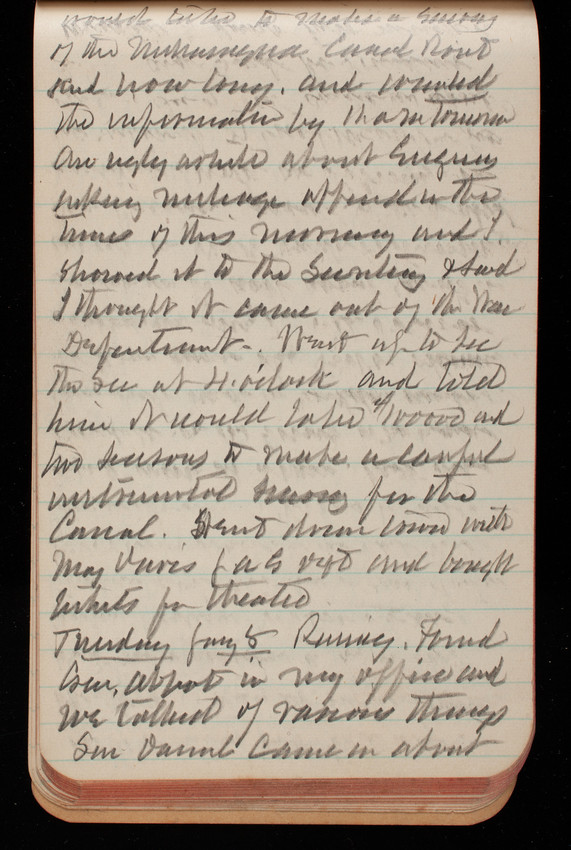 would take to make a survey
of the Nicaragua Canal Route
and how long. and wanted
the information by 11 a m tomorrow
An ugly article about Engineers
asking mileage appeared in the
Times of this morning and I
showed it to the Secretary & said
I thought it came out of the War
Department-. Went up to see
the Sec at 4 o'clock and told
him it would take $100000 and
two seasons to make a careful
instrumental survey for the
Canal. Went down town with
Maj Davis and bought
tickets for theatre
Tuesday Jany 8 Raining. Found
Gen. Abbot in my office and
we talked of various things
Sen came in about